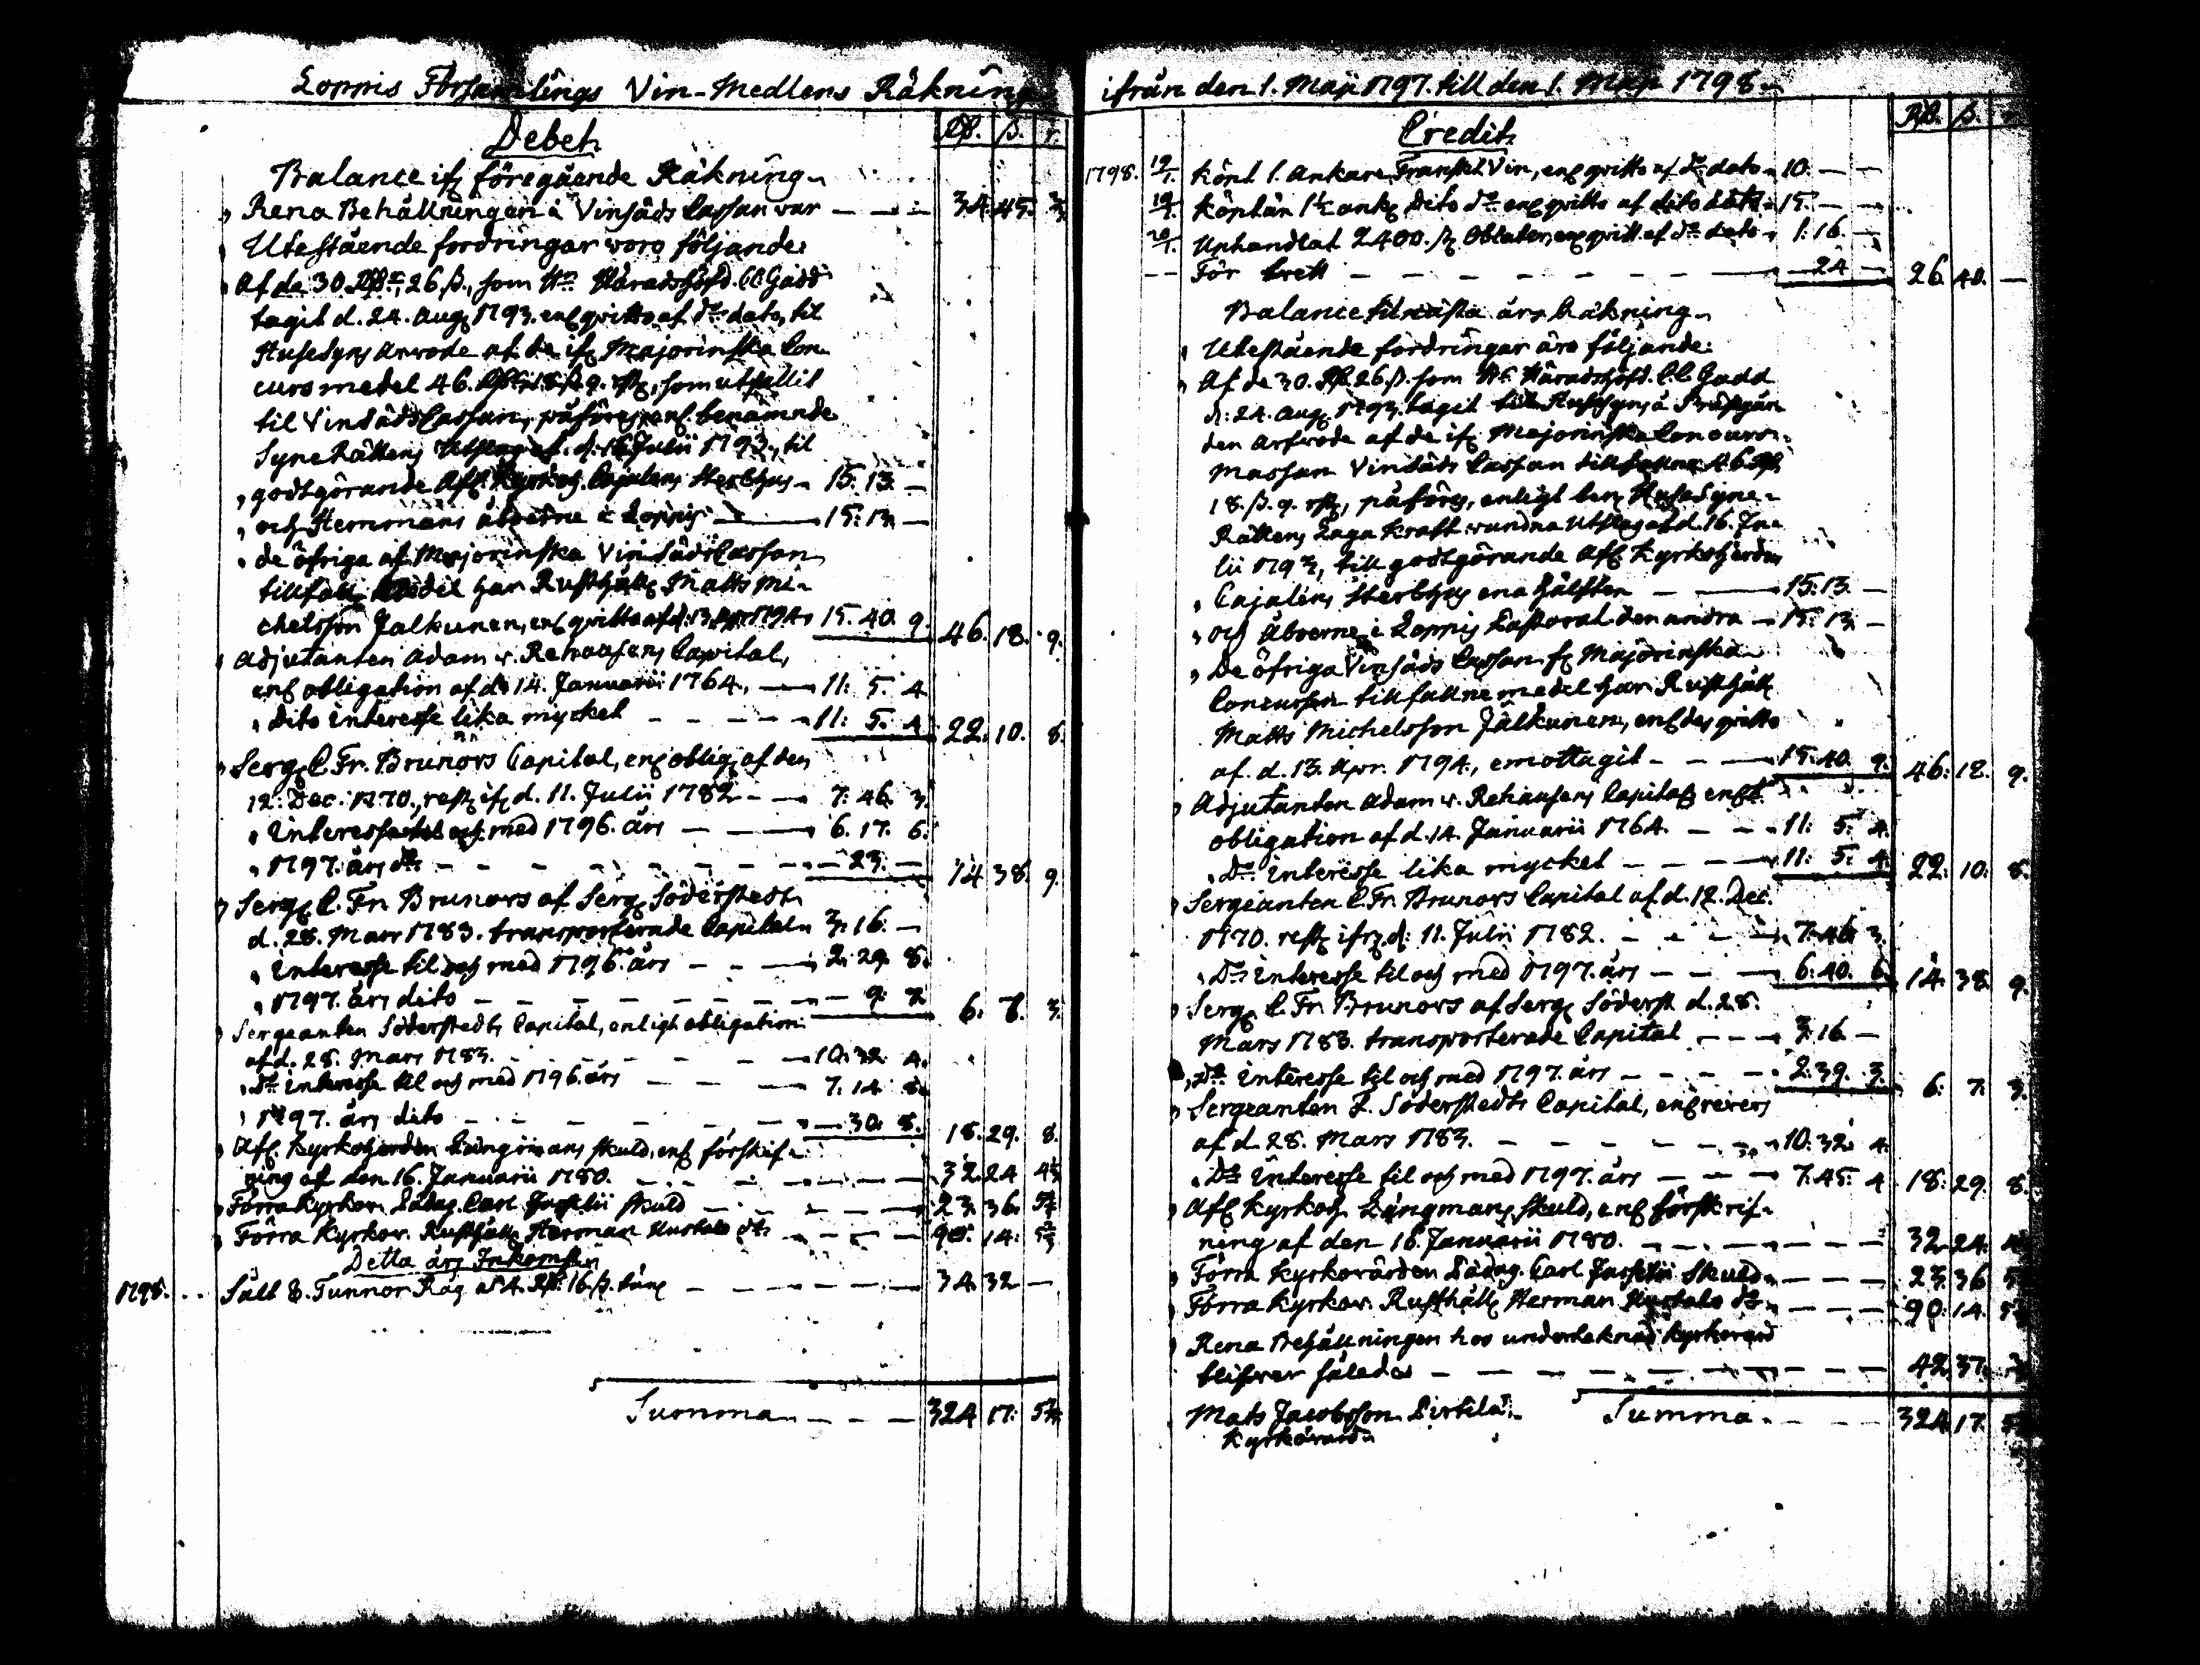 Loppis Församlings Vin-Medlens Räkning
Debet.
Rd. ß. r.
Balance ifr. föregående Räkning
Rena Behållningen i Vinsäds Cassan war — — 34. 45.
Utestående fordringar woro följande:
Af de 30. Rd. 26 ß., som Hr. Häradshöfd. C. C. Gadd
tagit d. 24. Aug. 1793. enl. qvitto af do dato, til
HuseSyns Arwode af de ifr. Majorinska Con-
curs medel 46. Rd. 18 ß. 9. rst., som utfallit
til VinsädsCassan, påföres enl. benämnde
SyneRättens Utslag af d. 16 Julii 1793., til
godtgörande Afl. Kyrkoh. Cajalens Sterbhus — 15. 13. —
och Hemmans åboerne i Loppis — 15. 13. —
de öfriga af Majorinska VinsädsCassan
tillfalln. Medel har Rusthåll. Matts Mi-
chelsson Jalkunen, enl. qvitto af d. 13. Apr. 1794. 15. 40. 9. 46. 18. 9.
Adjutanten Adam v. Rehausens Capital,
enl. obligation af d. 14. Januarii 1764., — 11: 5. 4
Dito interesse lika mycket — — — 11: 5. 4 22. 10. 8.
Serg. C. Fr. Brunors Capital, enl. oblig. af den
12. Dec. 1770., rest. ifr. d. 11. Julii 1782 — — 7: 46. 3.
Interesse til och med 1796. års — — 6. 17. 6.
1797. års do — — — — 23. — 14 38. 9.
Serg. C. Fr. Brunors af Serg. Söderstedt
d. 28. Mars 1783. transporterade Capital 3. 16. —
Interesse til och med 1796. års — — 2. 29. 8.
1797. års dito — — — — 9. 7. 6. 7. 3.
Sergeanten Söderstedts Capital, enligt obligation
af d. 28. Mars 1783. — — — 10. 32. 4.
Do interesse til och med 1796. års — — 7. 14. 8.
1797. års dito — — — — 30. 8. 18. 29. 8.
Afl. Kyrkoherden Långmans skuld, enl. förskrif-
ning af den 16. Januarii 1780. — — — 32. 24
Förra Kyrkov. Ladug. Carl skuld — — — 23. 36.
Förra Kyrkov. Rusthåll. Herman do — — — 90. 14.
Detta års Inkomster
1798. Sålt 8. Tunnor Råg at 4. Rd. 16 ß. tun. — — — 34. 32 —
Summa — — — 324 17.
ifrån den 1. Maji 1797. till den 1. Maji 1798.
Credit.
Rd. ß.
1798. 19/1. köpt 1. Ankare Franskt Vin, enl. qvitto af do dato 10. — —
19/1. köpt än 1½ ank. Dito do enl. qvitto af dito dato 15. — —
20/1. Uphandlat 2400. st. Oblater, enl. qvitt. af do dato 1. 16. —
För brett — — — — 24 — 26. 40. —
Balance til nästa års Räkning
Utestående fordringar äro följande:
Af de 30. Rd. 26. ß. som Hr. Häradshöfd. C. C. Gadd
d. 24. Aug. 1793. tagit till HusSyns å Prästgår-
den Arfwode af de ifr. Majorinska Concurs-
massan Vinsäds Cassan tillfallne 46 Rd.
18. ß. 9. rst., påföres, enligt ben. HuseSyne-
Rättens Laga Kraft wundna Utslag af d. 16. Ju-
lii 1793, till godtgörande Afl. Kyrkoherden
Cajalens Sterbhus ena hälften — — 15. 13. —
och åboerne i Loppis Pastorat den andra — 15. 13. —
De öfriga Vinsäds Cassan fr. Majorinska
Concursen tillfallne medel har Rusthåll.
Matts Michelsson Jälkunen, enl. des qvitto
af d. 13. Apr. 1794., emottagit — — — 15. 40. 9. 46. 18. 9.
Adjutanten Adam v. Rehausens Capital enl.
obligation af d. 14. Januarii 1764. — — 11: 5. 4.
Do interesse lika mycket — — — 11: 5. 4. 22. 10. 8.
Sergeanten C. Fr. Brunors Capital af d. 12. Dec.
1770. rest. ifr. d. 11. Julii 1782. — — — 7. 46 3.
Do interesse til och med 1797. års — — 6. 40. 6. 14. 38. 9.
Serg. C. Fr. Brunors af Serg. Söderst. d. 28.
Mars 1783. transporterade Capital — — 3. 16 —
Do interesse til och med 1797. års — — — 2. 39. 3. 6. 7. 3.
Sergeanten Söderstedts Capital, enl. revers
af d. 28. Mars 1783. — — — — 10. 32. 4.
Do Interesse til och med 1797. års — — 7. 45. 4 18. 29. 8.
Afl. Kyrkoh. Långmans skuld, enl. förskrif-
ning af den 16. Januarii 1780. — — — 32. 24.
Förra Kyrkovärden Ladug. Carl Skuld — — — 23. 36
Förra Kyrkov. Rusthåll. Herman do — — — 90. 14.
Rena Behållningen hos underteknad kyrkovärd
blifwer således — — — — 42. 37.
Mats Jacobsson Pirtilä. Summa. — — — 324. 17.
Kyrkovärd.